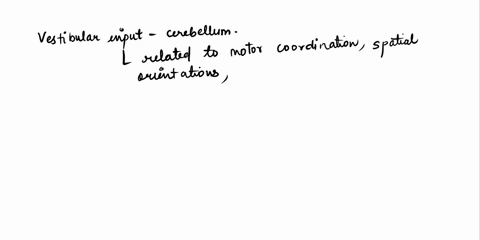 Vestibular input - cerebellum.
related to motor coordination, spatial
orientations,